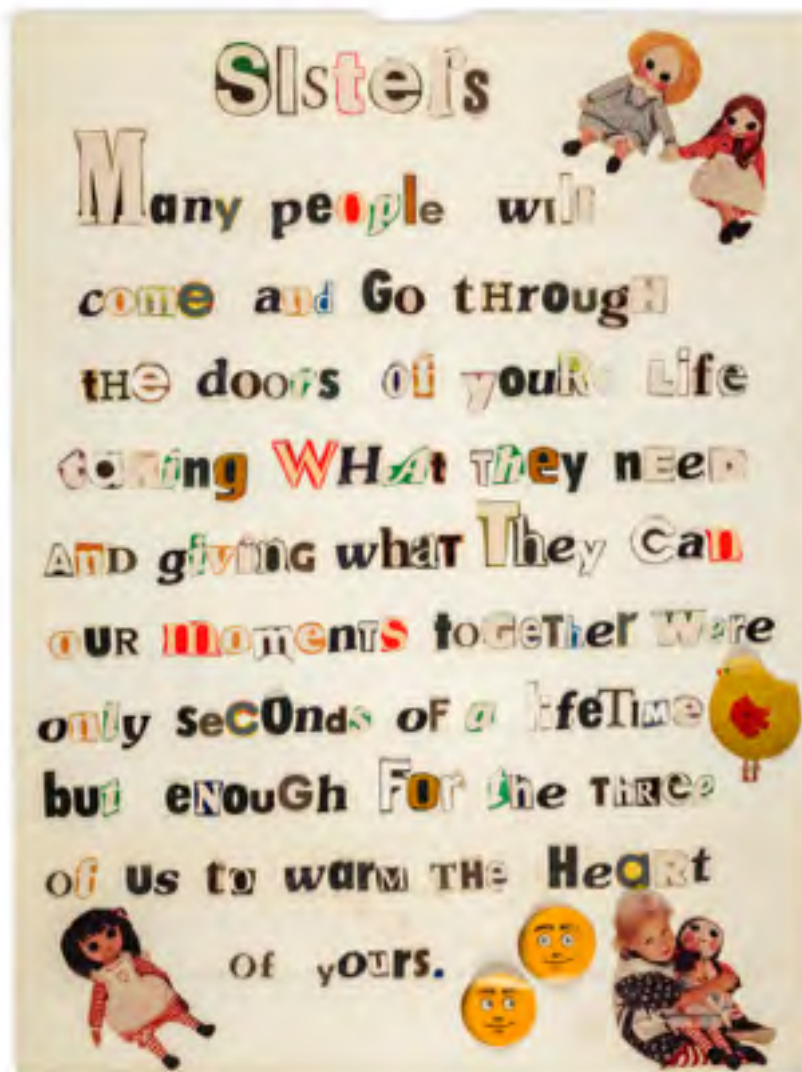 SIsters
Many people will
come and Go tHrougH
tHe doors of youR Life
taking WHAt They nEED
AnD giving what They Can
ouR momenTs toGeTher Were
only SeCOnds oF a lifeTiMe
but eNouGh For the ThRee
of us to warm THe HeaRt
Of yours.